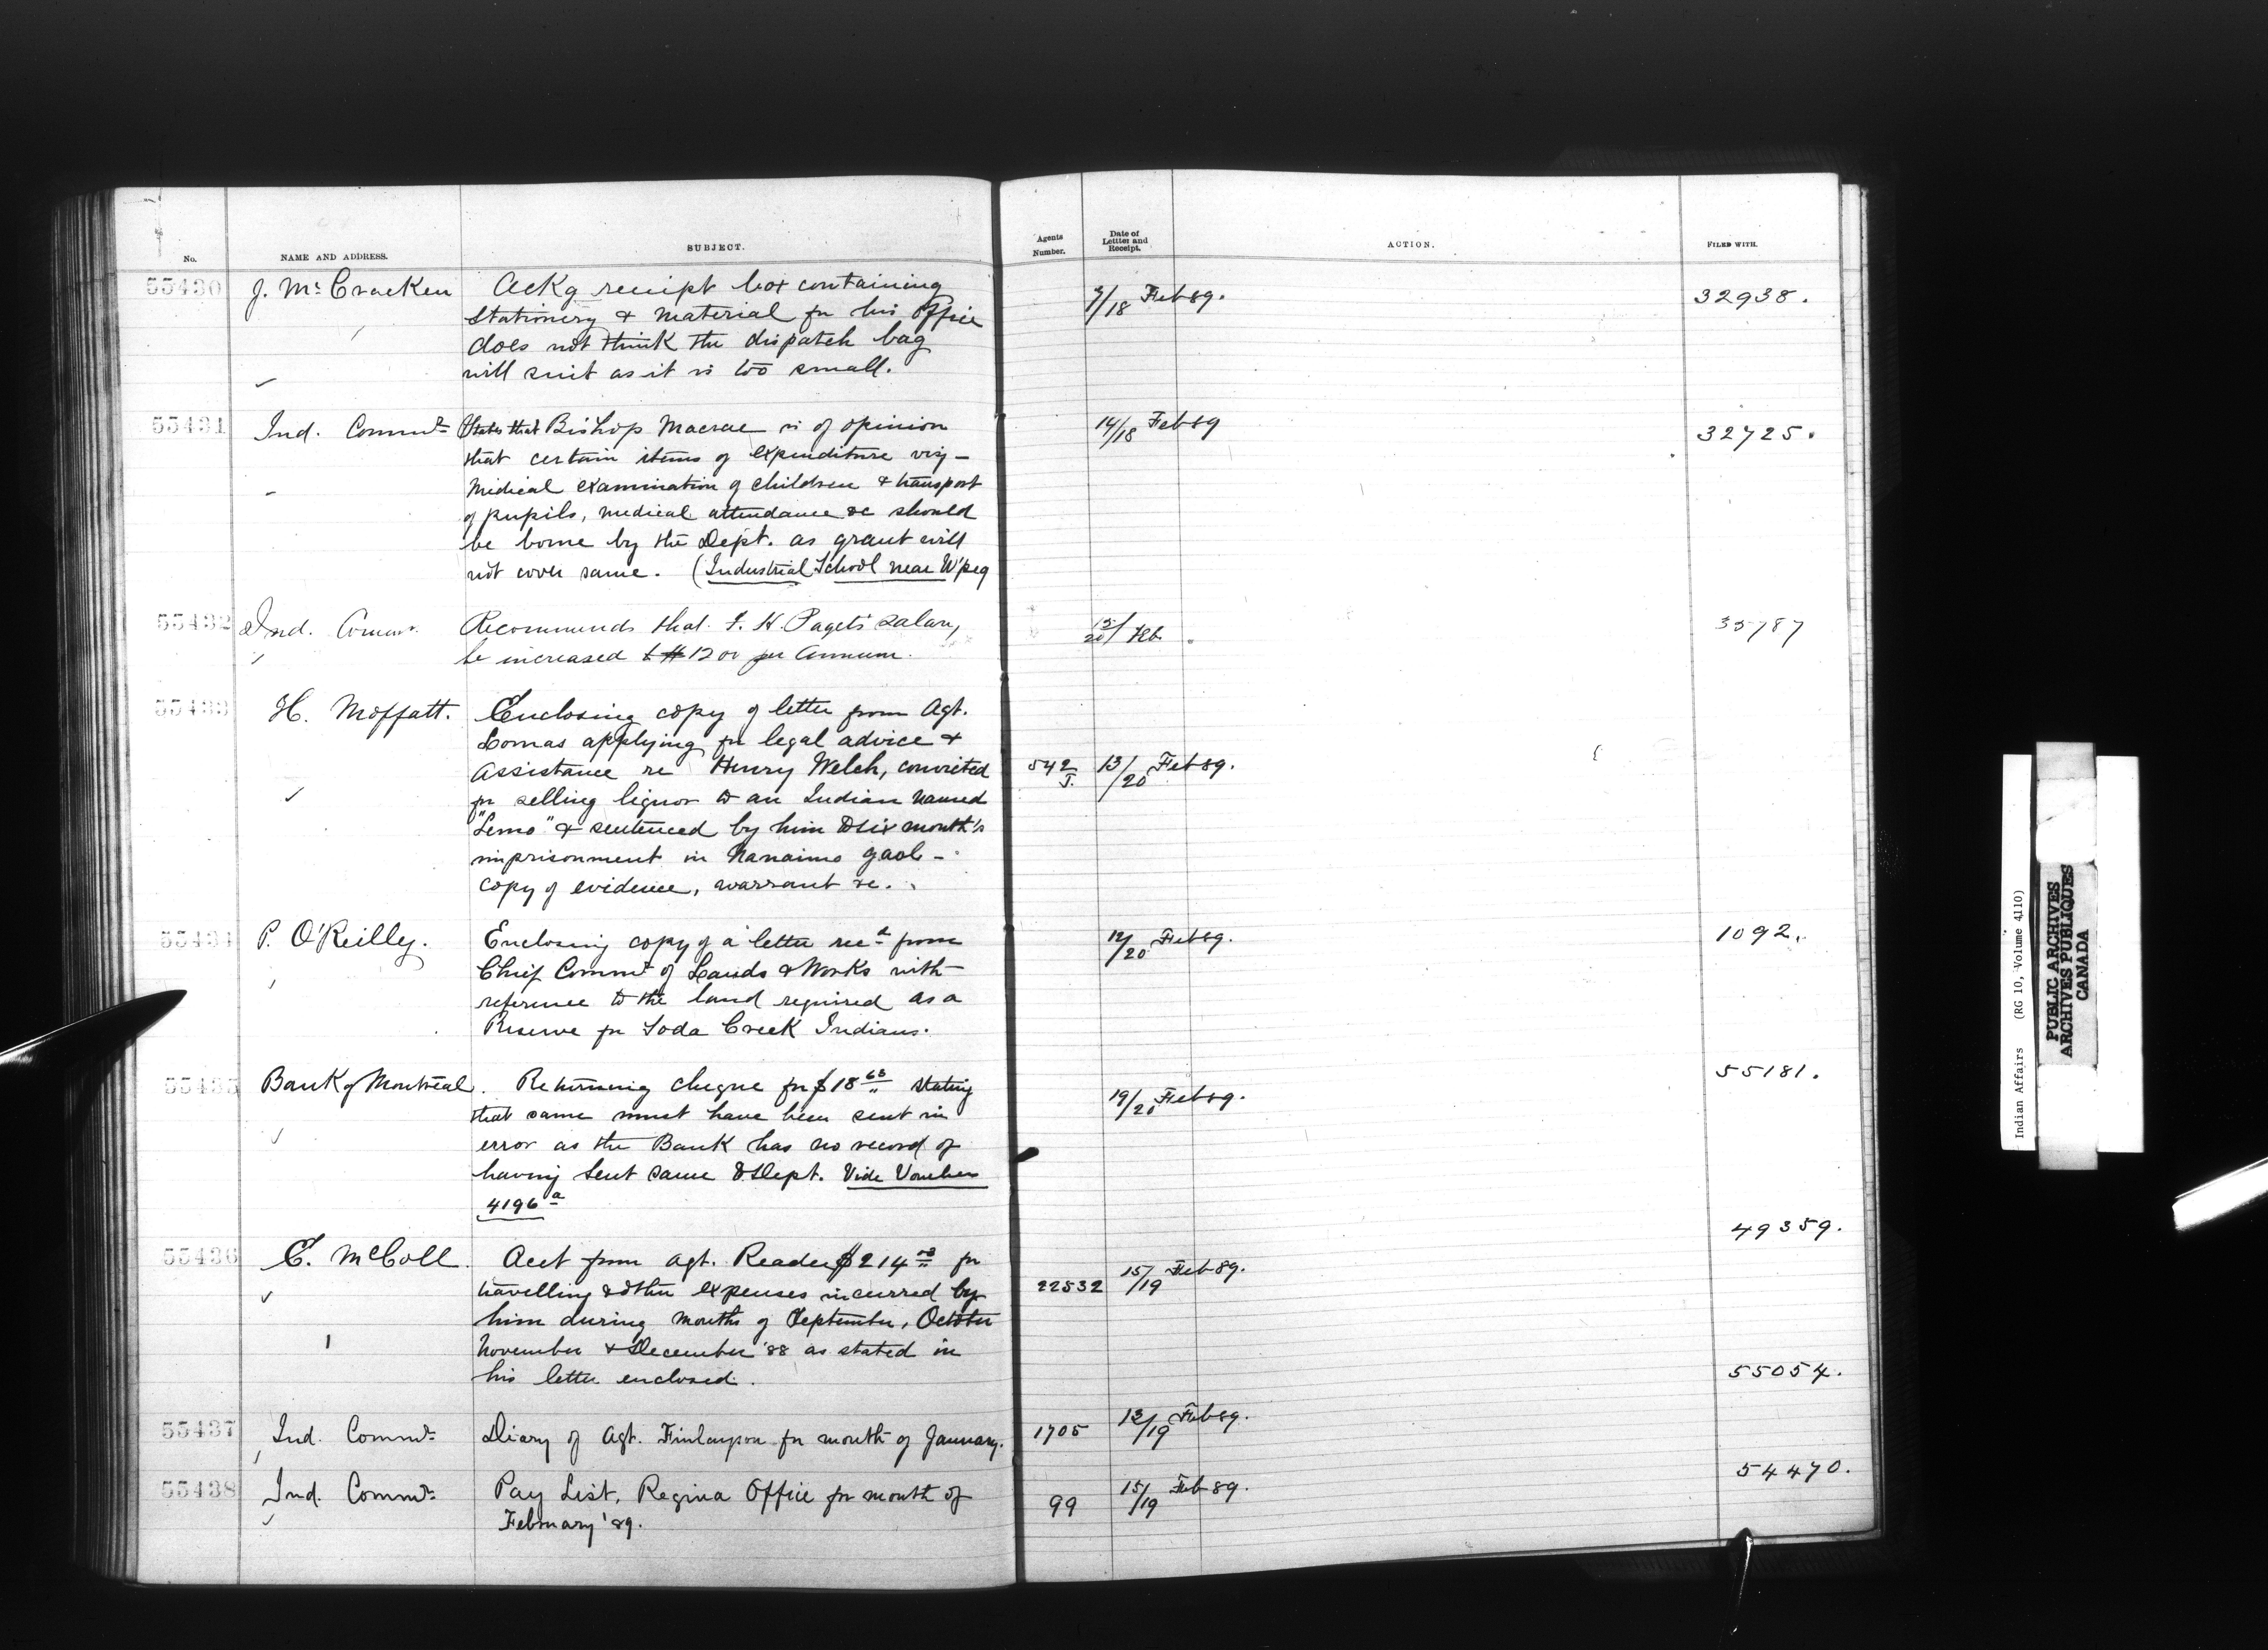 No. NAME AND ADDRESS. SUBJECT. Agents Number. Date of Letter and Receipt. ACTION. FILED WITH.
55430 J. McCracken Ackg receipt box containing 9/18 Feb 89. 32938.
Stationery & Material for his Office
does not think the dispatch bag
will suit as it is too small.
55431 Ind. Commr States that Bishop Macrae is of opinion 14/18 Feb 89 32725.
that certain items of expenditure viz -
Medical examination of children & transport
of pupils, medical attendance &c should
be borne by the Dept. as grant will
not cover same. (Industrial School near W'peg
55432 Ind. Commr. Recommends that F. H. Paget's salary 15/20 Feb. 35787
be increased to $1200 per Annum.
55433 H. Moffatt. Enclosing copy of letter from Agt.
Lomas applying for legal advice &
Assistance re Henry Welch, convicted 542/J. 13/20 Feb 89.
for selling liquor to an Indian named
"Lemo" & sentenced by him to six month's
imprisonment in Nanaimo gaol -
copy of evidence, warrant &c.
55434 P. O'Reilly. Enclosing copy of a letter recd from 12/20 Feb 89. 1092.
Chief Commr of Lands & Works with
reference to the land required as a
Reserve for Soda Creek Indians.
55435 Bank of Montreal. Returning cheque for $18 65 stating 19/20 Feb 89. 55181.
that same must have been sent in
error as the Bank has no record of
having sent same to Dept. Vide Voucher
4196a
55436 E. McColl. Acct from Agt. Reader $214 for 22532 15/19 Feb 89. 49359.
travelling & other expenses incurred by
him during months of September, October
November & December '88 as stated in
his letter enclosed.
55437 Ind. Commr. Diary of Agt. Finlayson for month of January. 1705 13/19 Feb 89. 55054.
55438 Ind. Commr. Pay List, Regina Office for month of 99 15/19 Feb 89. 54470.
February '89.
Indian Affairs (RG 10, Volume 4110)
PUBLIC ARCHIVES
ARCHIVES PUBLIQUES
CANADA